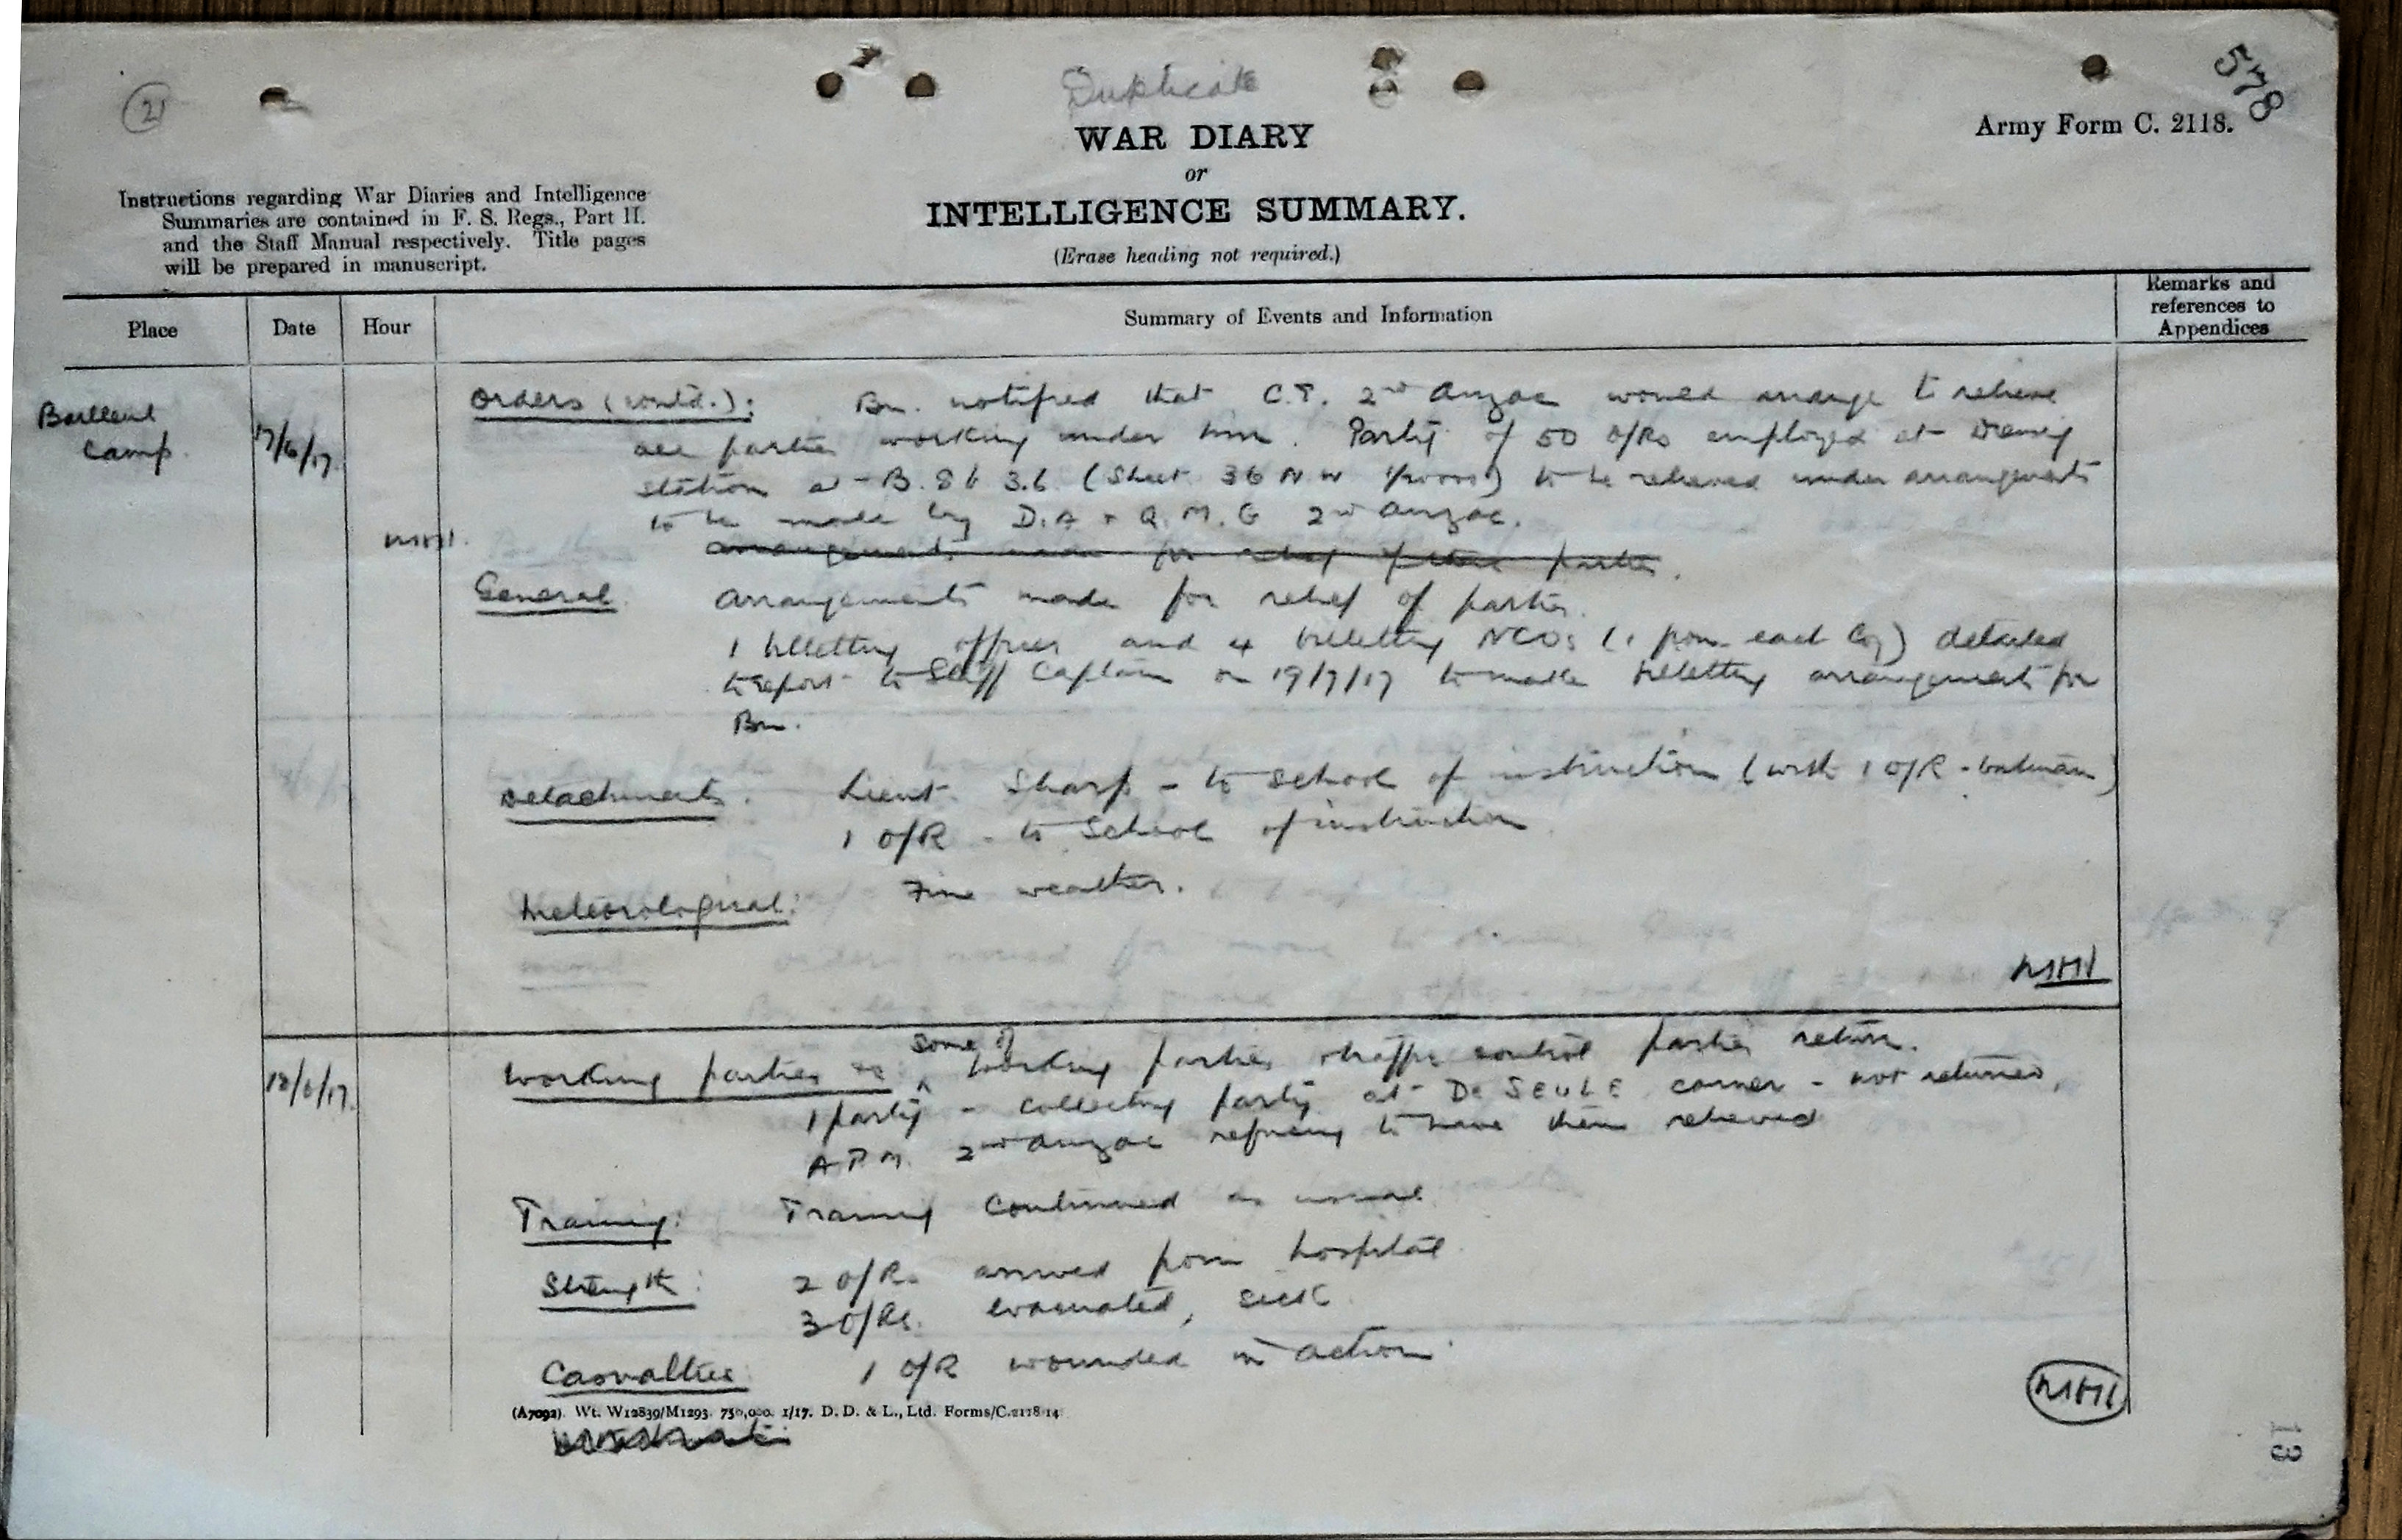 21
Duplicate
578
WAR DIARY
or
INTELLIGENCE SUMMARY.
(Erase heading not required.)
Army Form C. 2118.
Instructions regarding War Diaries and Intelligence
Summaries are contained in F. S. Regs., Part II.
and the Staff Manual respectively. Title pages
will be prepared in manuscript.
Place
Date
Hour
Summary of Events and Information
Remarks and
references to
Appendices
Camp.
17/6/17.
Orders (contd.): Bn. notified that 2nd Anzac would arrange to relieve
all parties working under him. Party of 50 O/Rs employed at
station at B. 8 b 3.6 (Sheet 36 N.W 1/20000) to be relieved under arrangements
to be made by D.A & Q.M.G 2nd Anzac.
arrangements made for relief of parties.
General. Arrangements made for relief of parties.
1 billetting officer and 4 billetting NCOs (1 from each Coy) detailed
to report to Staff Captain on 19/7/17 to make billetting arrangements for
Bn.
Detachments. Lieut. Sharp - to School of instruction (with 1 O/R - batman)
1 O/R - to School of instruction
Meteorological: Fine weather.
18/6/17.
Working parties some of working parties & traffic control parties return.
1 party - collecting party at De SEULE corner - not returned,
A.P.M. 2nd Anzac refusing to have them relieved
Training: Training continued as usual
Strength: 2 O/Rs arrived from hospital.
3 O/Rs. evacuated, sick
Casualties: 1 O/R wounded in action.
(A7092). Wt. W12839/M1293. 750,000. 1/17. D. D. & L., Ltd. Forms/C.2118/14
13